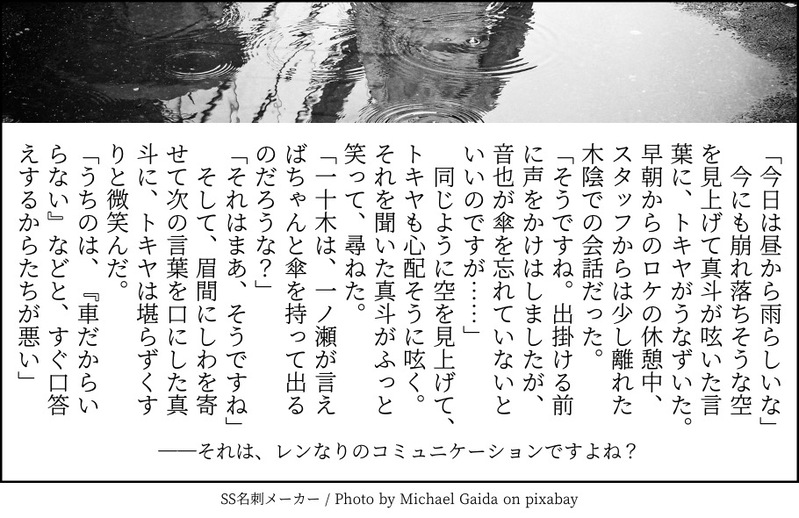 「今日は昼から雨らしいな」
　今にも崩れ落ちそうな空
を見上げて真斗が呟いた言
葉に、トキヤがうなずいた。
早朝からのロケの休憩中、
スタッフからは少し離れた
木陰での会話だった。
「そうですね。出掛ける前
に声をかけはしましたが、
音也が傘を忘れていないと
いいのですが……」
　同じように空を見上げて、
トキヤも心配そうに呟く。
それを聞いた真斗がふっと
笑って、尋ねた。
「一十木は、一ノ瀬が言え
ばちゃんと傘を持って出る
のだろうな？」
「それはまあ、そうですね」
　そして、眉間にしわを寄
せて次の言葉を口にした真
斗に、トキヤは堪らずくす
りと微笑んだ。
「うちのは、『車だからい
らない』などと、すぐ口答
えするからたちが悪い」
――それは、レンなりのコミュニケーションですよね？
SS名刺メーカー / Photo by Michael Gaida on pixabay